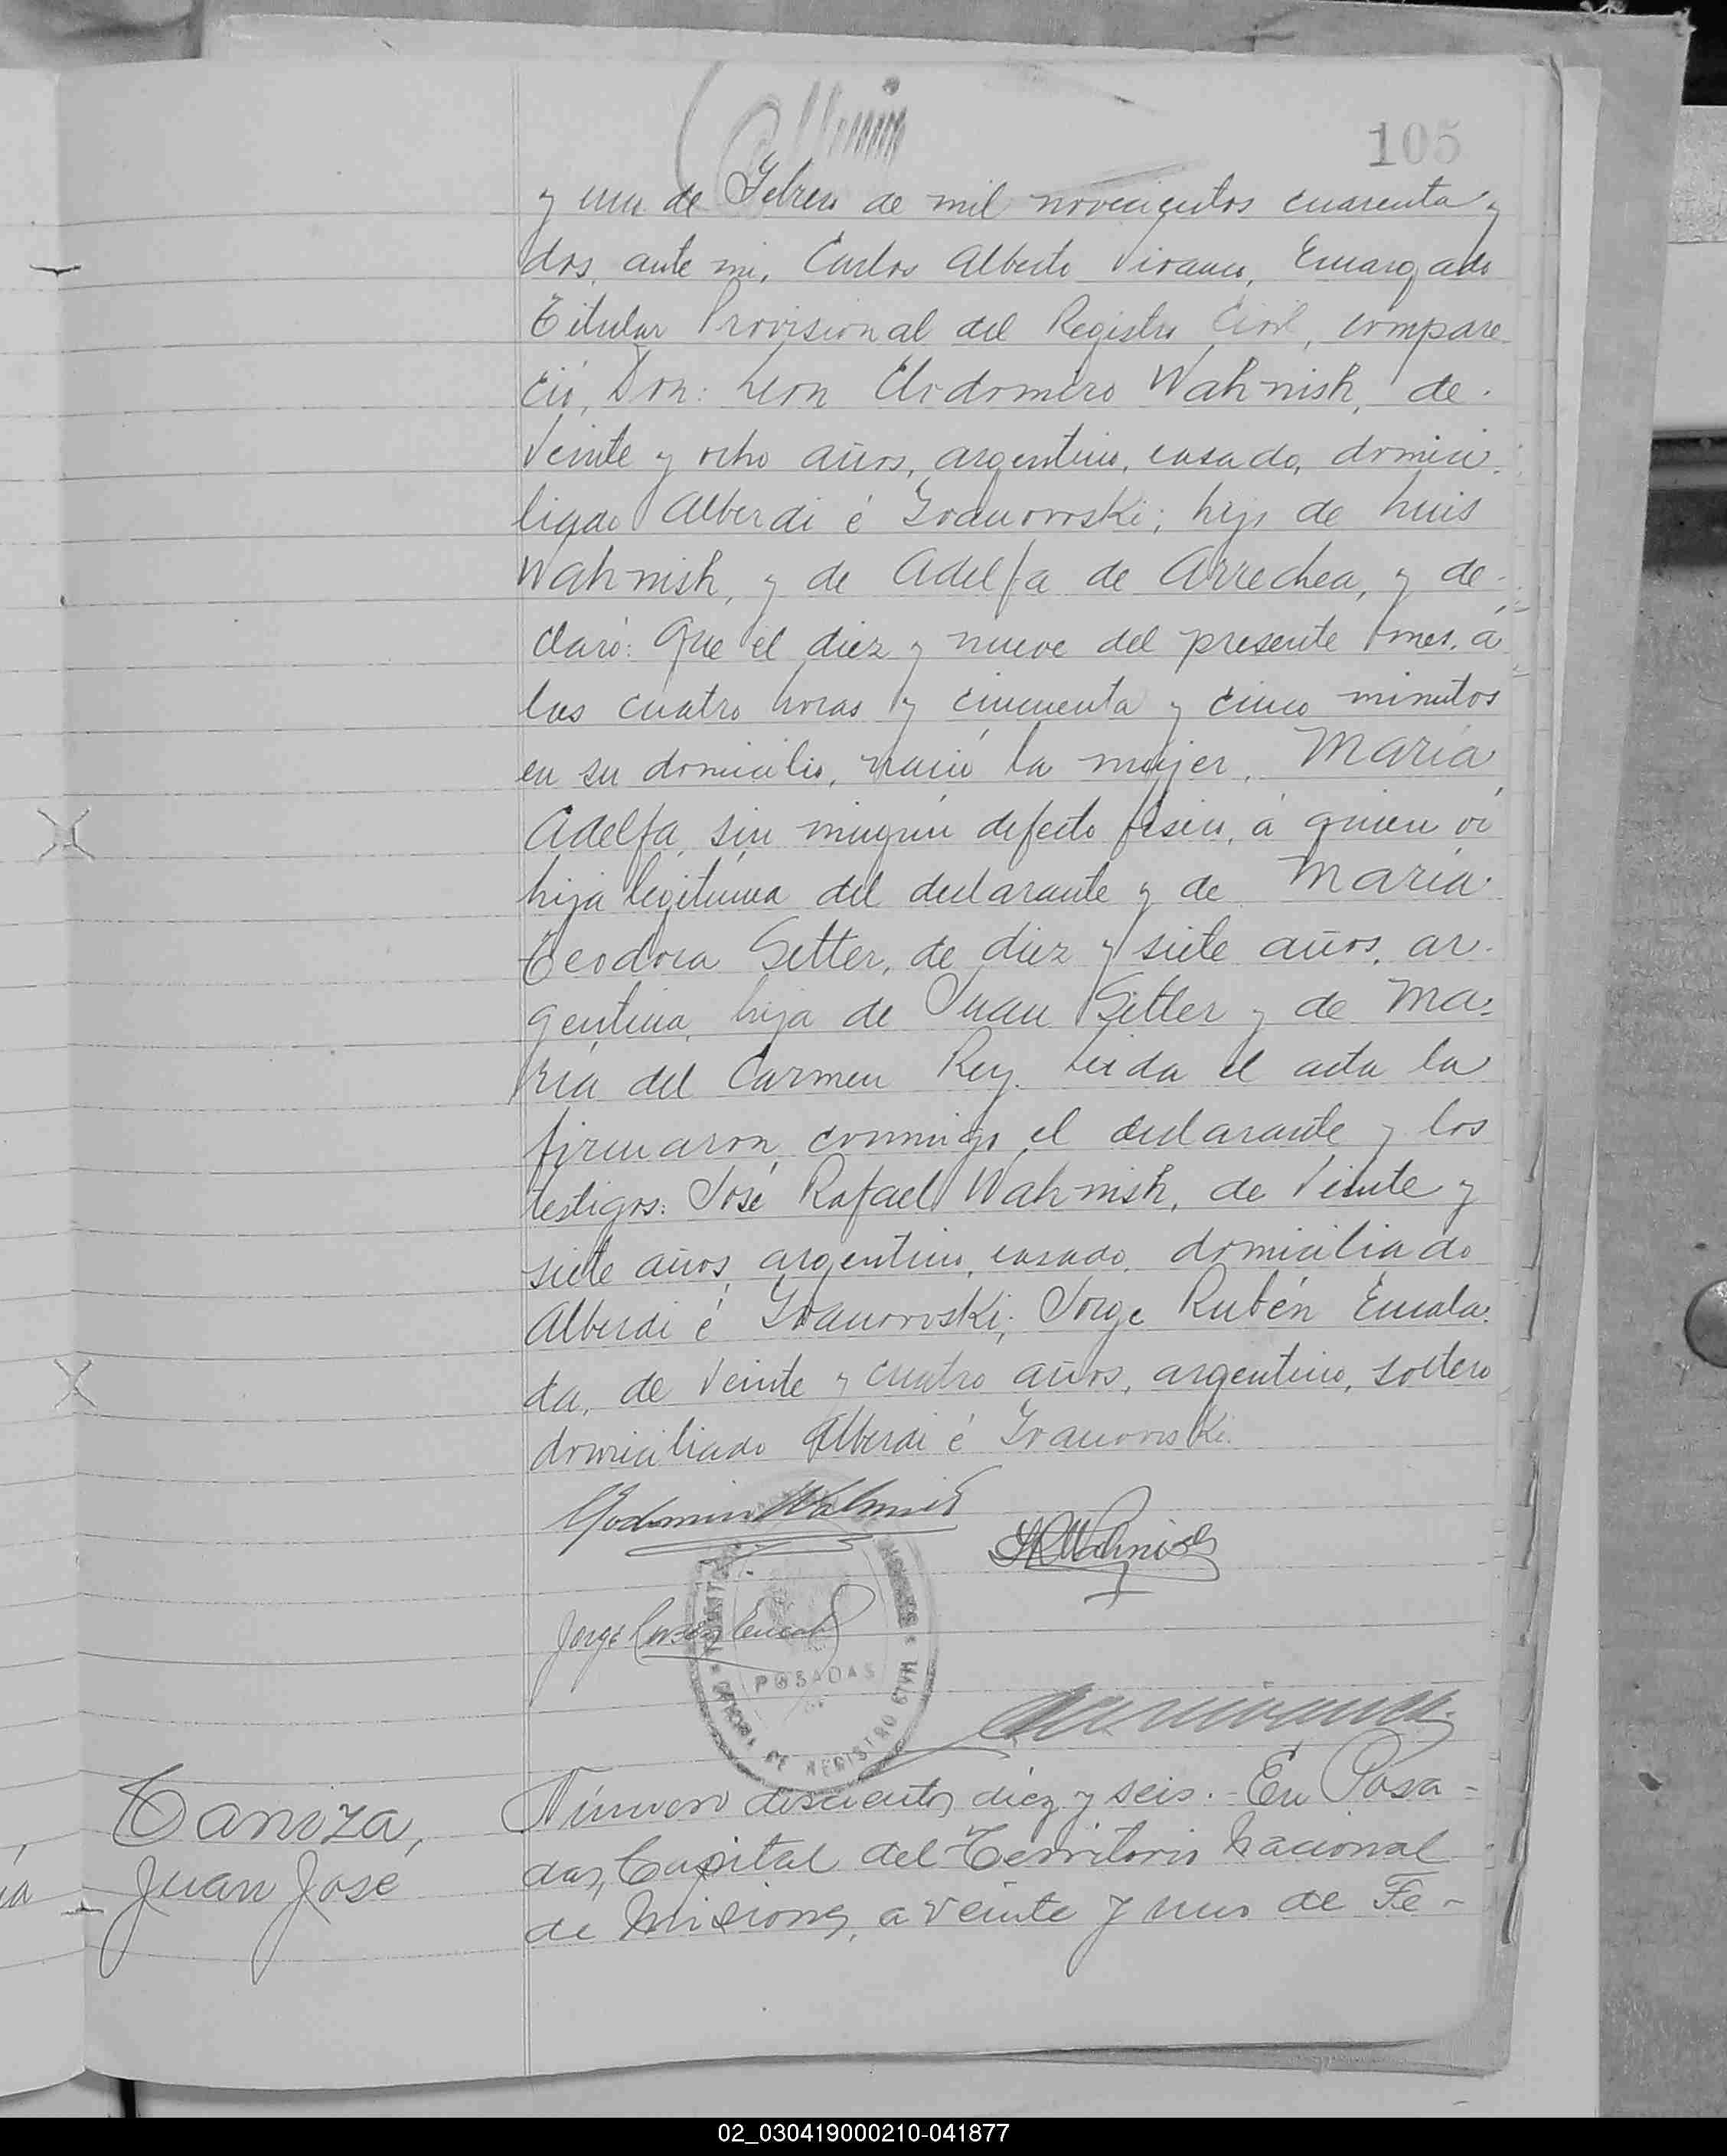 105
y uno de Febrero de mil novecientos cuarenta y
dos, ante mi, Carlos Alberto Vivanco, Encargado
Titular Provisional del Registro Civil, compare
ció, Don: Leon Clodomiro Wahnish, de
veinte y ocho años, argentino, casado, domici-
liado Alberdi é Ivanovski; hijo de Luis
Wahnish, y de Adelfa de Arrechea, y de-
claró: Que el diez y nueve del presente mes, á
las cuatro horas y cincuenta y cinco minutos
en su domicilio, nació la mujer, María
Adelfa, sin ningún defecto físico, á quien vi
hija legítima del declarante y de María
Teodora Setter, de diez y siete años, ar-
gentina, hija de Juan Setter y de Ma-
ría del Carmen Rey. Leida el acta la
firmaron conmigo el declarante y los
testigos: José Rafael Wahnish, de veinte y
siete años, argentino, casado, domiciliado
Alberdi é Ivanovski; Jorge Rubén Encala-
da, de veinte y cuatro años, argentino, soltero
domiciliado Alberdi é Ivanovski.
POSADAS
OFICINA DE REGISTRO CIVIL
Taniza,
Juan José
Número doscientos diez y seis.- En Posa-
das, Capital del Territorio Nacional
de Misiones, a veinte y uno de Fe-
02_030419000210-041877